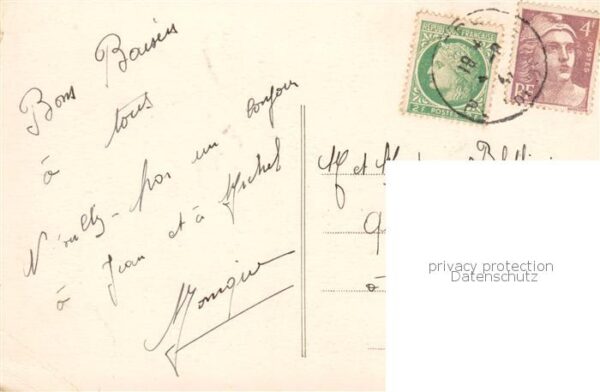 Bons Baisers
à tous
N'oubliez-pas un bonjour
à Jean et à Michel
Monique
REPUBLIQUE FRANÇAISE
2F POSTES
4F
POSTES
RF
18
M et
à
privacy protection
Datenschutz